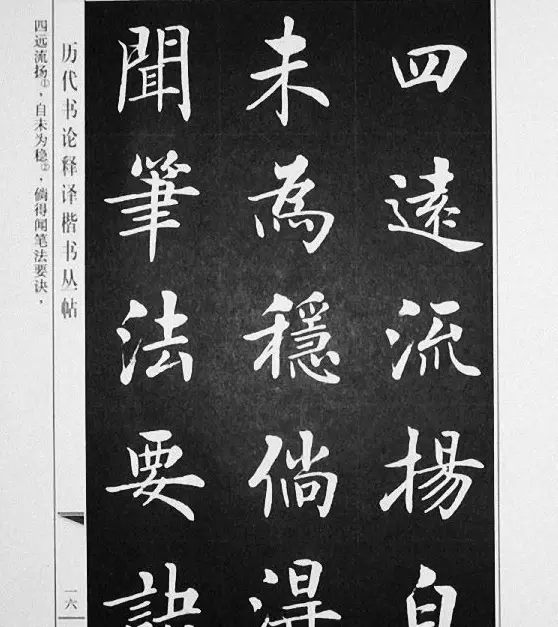 四遠流揚自
未為穩倘得
聞筆法要訣
历代书论释译楷书丛帖
一六
四远流扬①，自未为稳②，倘得闻笔法要诀，